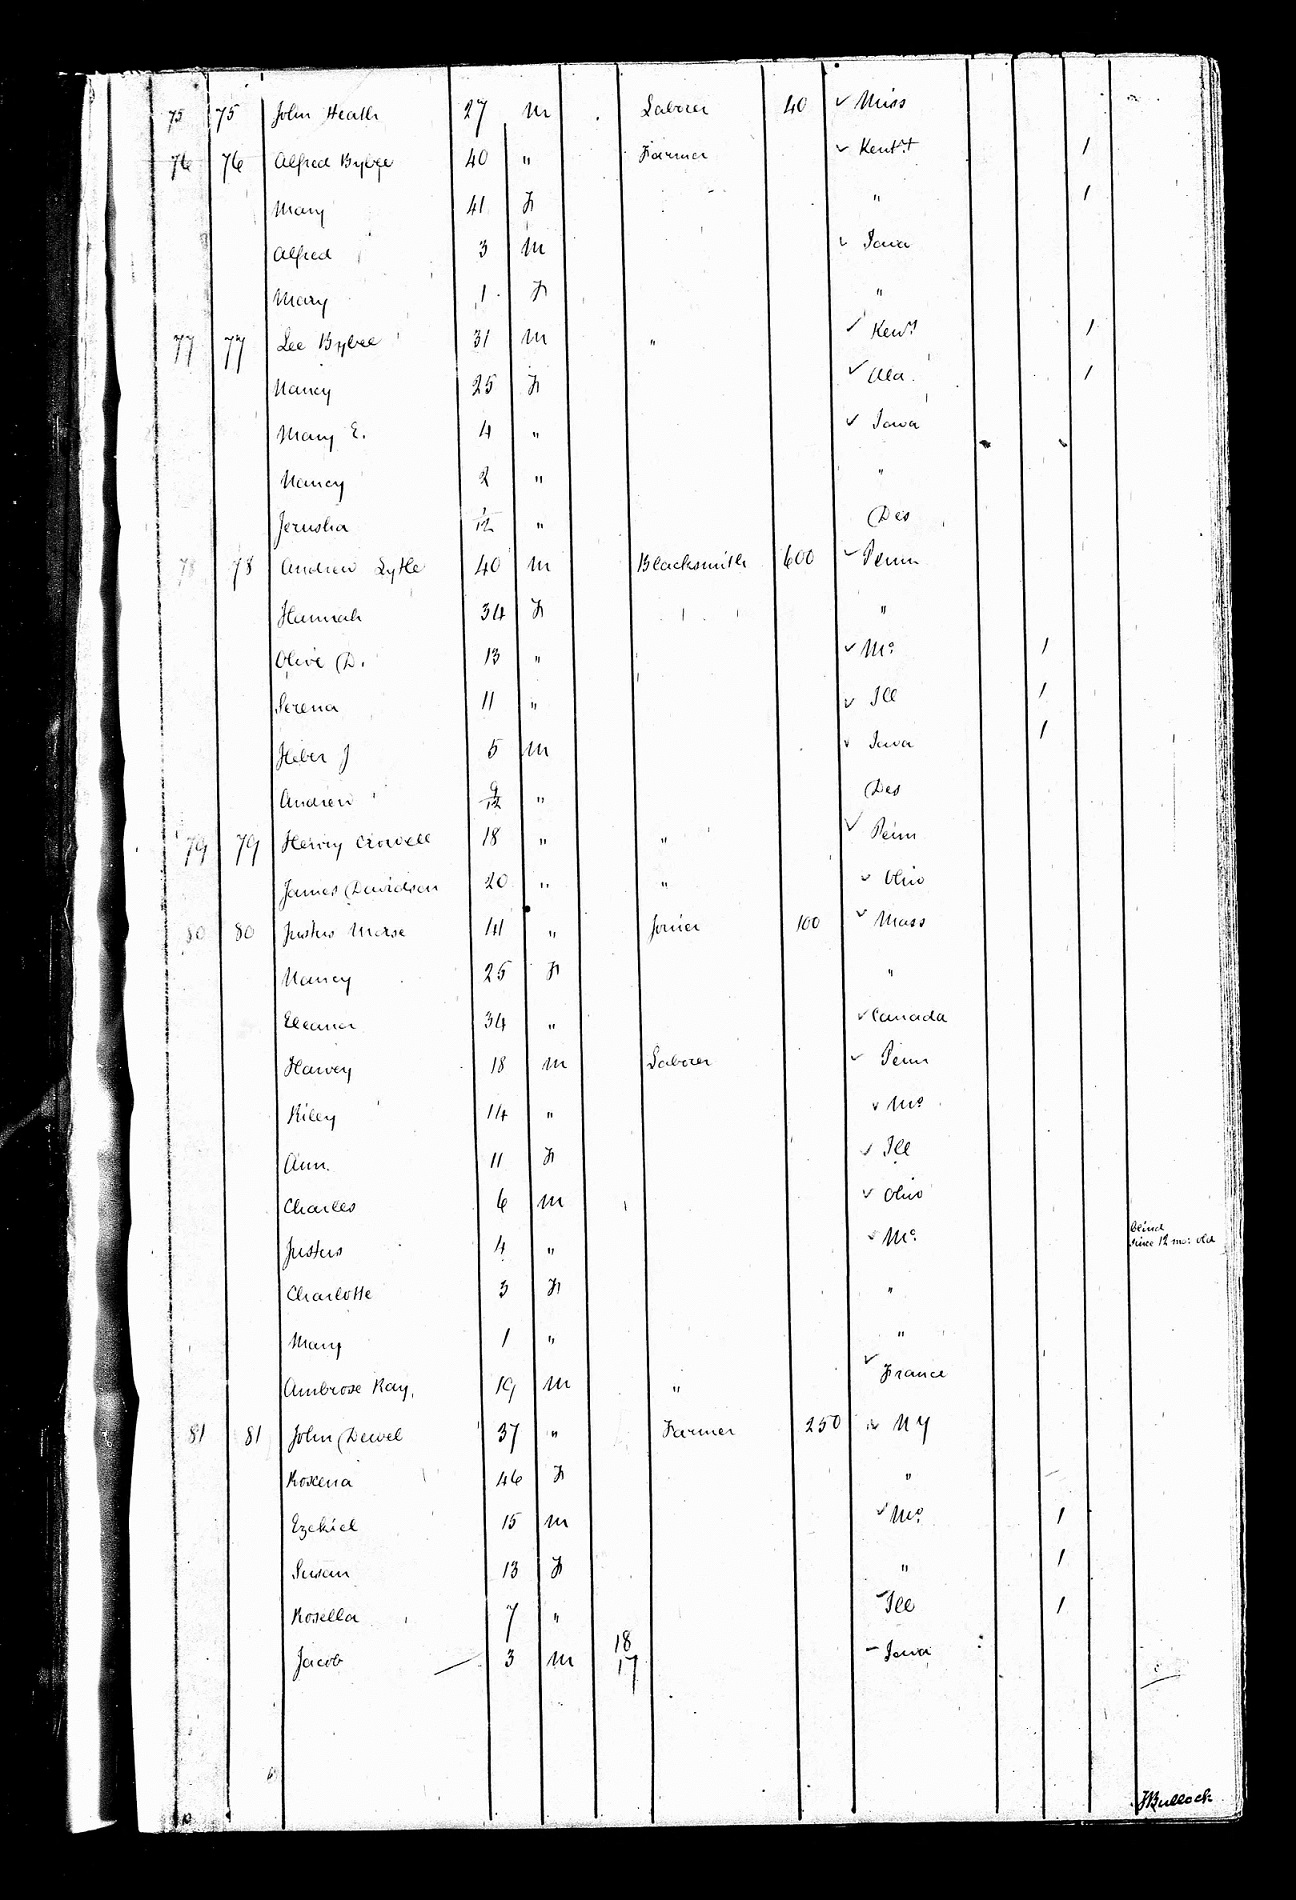 75 75 John Heath 27 m Laborer 40 Miss
76 76 Alfred Bybee 40 " Farmer Kent. 1
Mary 41 F " 1
Alfred 3 m Iowa
Mary 1 F "
77 77 Lee Bybee 31 m " Kent 1
Nancy 25 F 1
Mary E. 4 " Iowa
Nancy 2 " "
Jerusha 1/12 " Des
78 78 Andrew Lytle 40 m Blacksmith 600 Penn
Hannah 34 F "
Olive D. 13 " Mo. 1
Serena 11 " Ill 1
Heber J 5 m Iowa 1
Andrew 9/12 " Des
79 79 Henry Crowell 18 " " Penn
James Davidson 20 " " Ohio
80 80 Justus Morse 41 " Joiner 100 Mass
Nancy 25 F "
Eleanor 34 " Canada
Harvey 18 m Laborer Penn
Riley 14 " Mo
Ann. 11 F Ill
Charles 6 m Ohio
Justus 4 " Mo. blind since 12 mo: old
Charlotte 3 F "
Mary 1 " "
Ambrose Ray. 19 m " France
81 81 John Dewel 37 " Farmer 250 N Y
Roxena 46 F "
Ezekiel 15 m Mo. 1
Susan 13 F " 1
Rosella 7 " Ill 1
Jacob 3 m 18 17 Iowa
TBullock